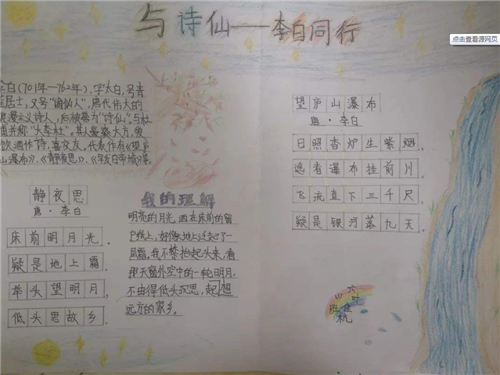 与诗仙——李白同行
点击查看源网页
李白(701年—762年),字太白,号青
莲居士,又号“谪仙人”,唐代伟大的
浪漫主义诗人,后被誉为“诗仙”,与杜
甫并称“大李杜”。其人豪爽大方,爱
饮酒作诗,喜交友,代表作有《望庐
山瀑布》、《静夜思》、《早发白帝城》等。
静夜思
唐·李白
床前明月光,
疑是地上霜。
举头望明月,
低头思故乡。
我的理解
明亮的月光,洒在床前的窗
户纸上,好像地上泛起了一
层霜。我不禁抬起头来,看
那天窗外空中的一轮明月,
不由得低头沉思,起想
远方的家乡。
望庐山瀑布
唐·李白
日照香炉生紫烟,
遥看瀑布挂前川。
飞流直下三千尺,
疑是银河落九天。